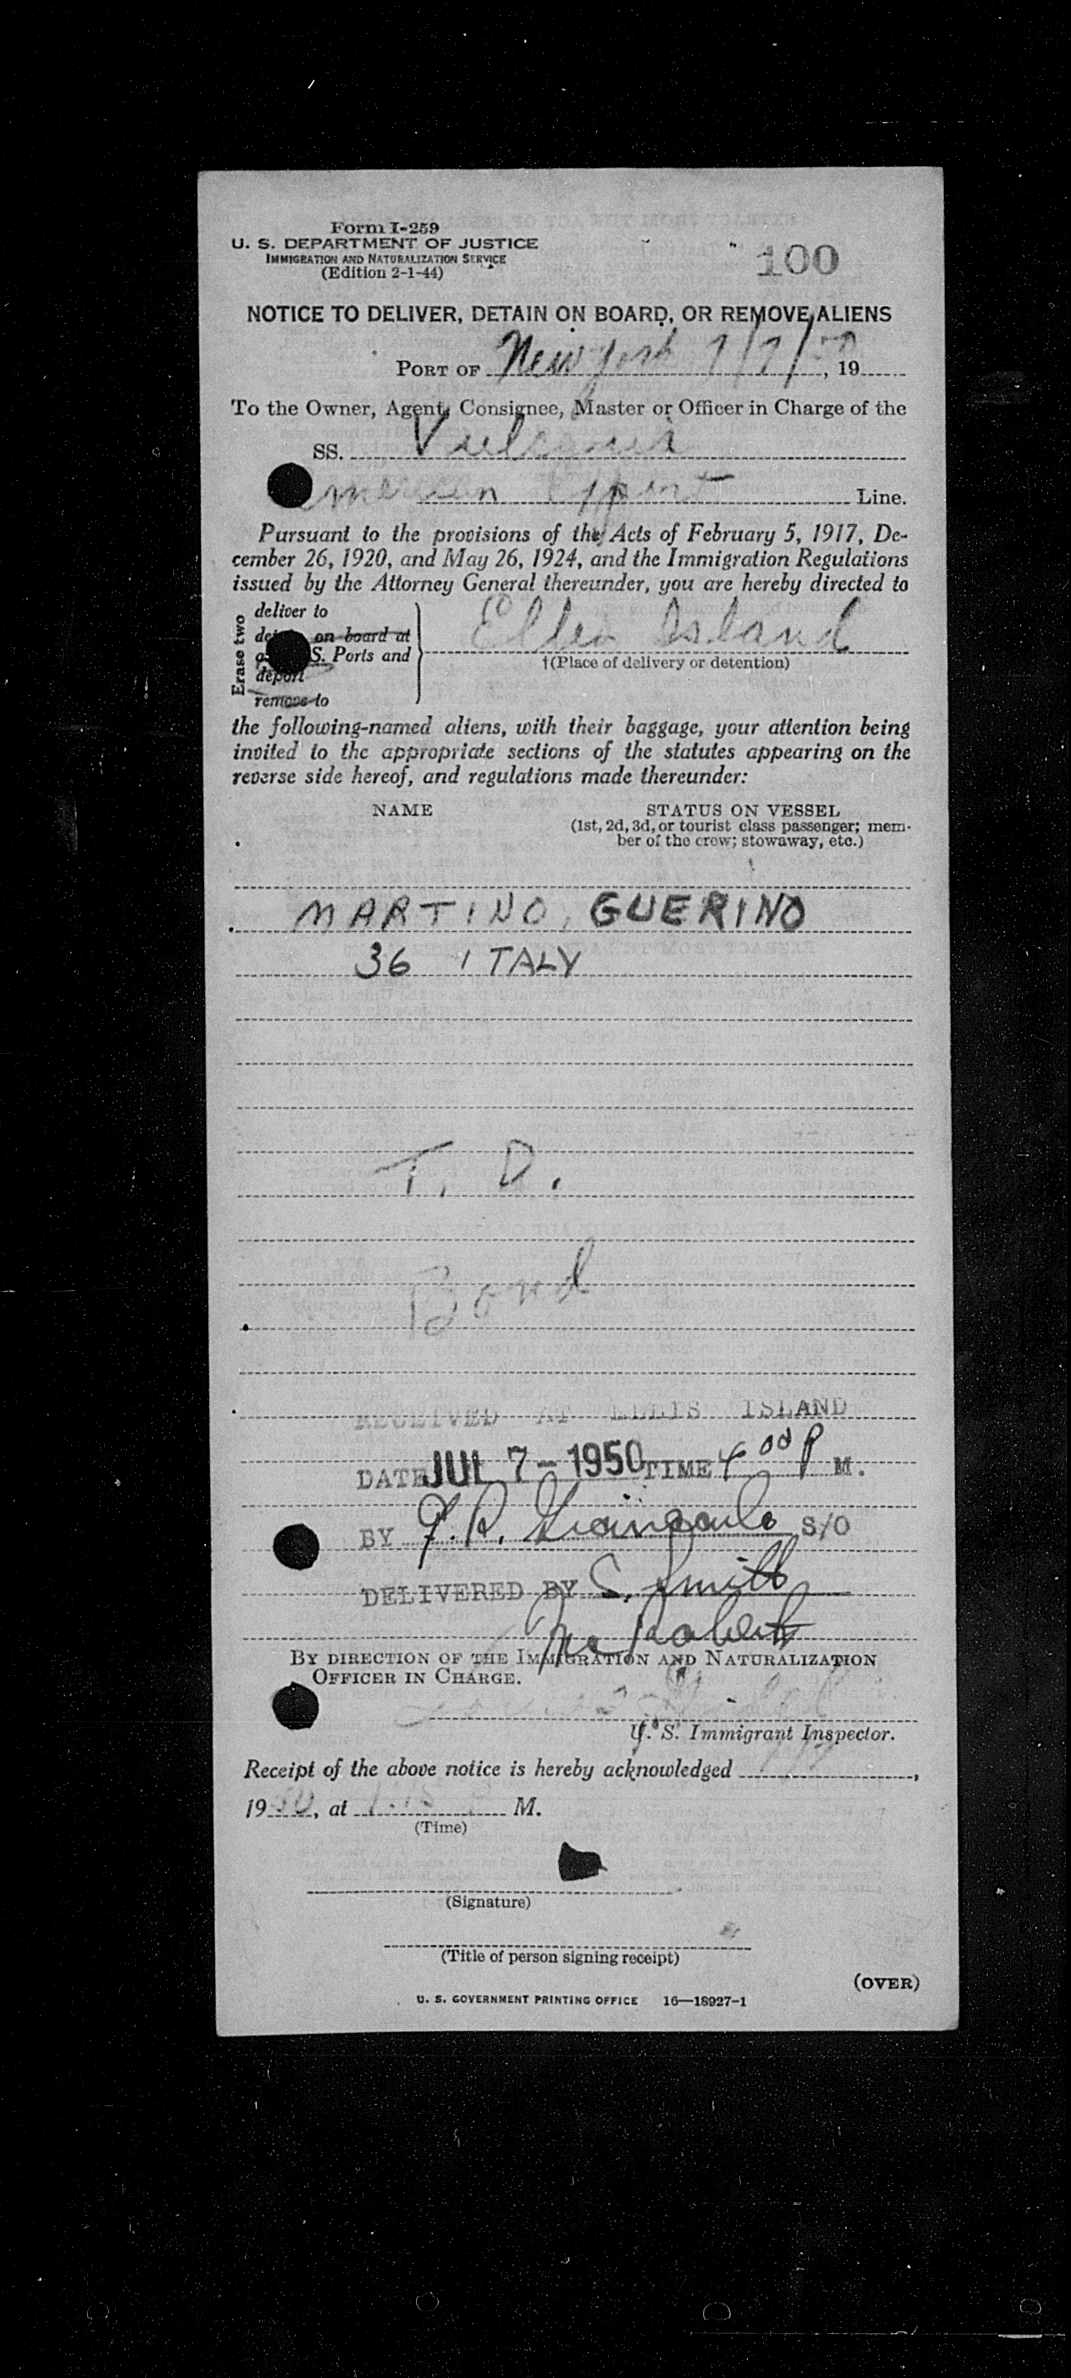 Form I-259
U. S. DEPARTMENT OF JUSTICE
IMMIGRATION AND NATURALIZATION SERVICE
(Edition 2-1-44)
100
NOTICE TO DELIVER, DETAIN ON BOARD, OR REMOVE ALIENS
PORT OF New York 7/7/50, 19
To the Owner, Agent, Consignee, Master or Officer in Charge of the
SS. Vulcania
American Export Line.
Pursuant to the provisions of the Acts of February 5, 1917, De-
cember 26, 1920, and May 26, 1924, and the Immigration Regulations
issued by the Attorney General thereunder, you are hereby directed to
Erase two
deliver to
on board at
S. Ports and
deport
remove to
Ellis Island
†(Place of delivery or detention)
the following-named aliens, with their baggage, your attention being
invited to the appropriate sections of the statutes appearing on the
reverse side hereof, and regulations made thereunder:
NAME STATUS ON VESSEL
(1st, 2d, 3d, or tourist class passenger; mem-
ber of the crew; stowaway, etc.)
MARTINO, GUERINO
36 ITALY
T. D.
Bond
RECEIVED AT ELLIS ISLAND
DATE JUL 7 - 1950 TIME 4 00 P M.
BY S/O
DELIVERED BY S. Smith
BY DIRECTION OF THE IMMIGRATION AND NATURALIZATION
OFFICER IN CHARGE.
U. S. Immigrant Inspector.
Receipt of the above notice is hereby acknowledged 7/7,
1950, at M.
(Time)
(Signature)
(Title of person signing receipt)
(OVER)
U. S. GOVERNMENT PRINTING OFFICE 16—18927-1